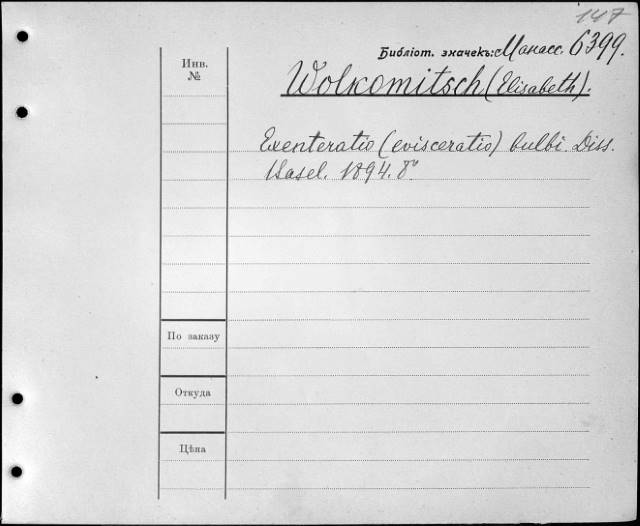 147
Библіот. значекъ: Манасс. 6399.
Инв. №
Wolkomitsch (Elisabeth).
Exenteratio (evisceratio) bulbi. Diss.
Basel. 1894. 8°
По заказу
Откуда
Цѣна